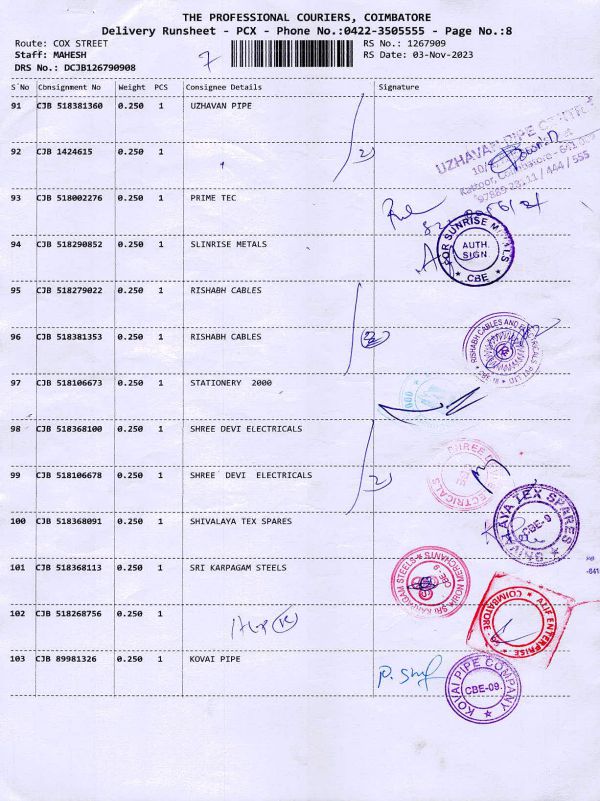 THE PROFESSIONAL COURIERS, COIMBATORE
Delivery Runsheet - PCX - Phone No.:0422-3505555 - Page No.:8
Route: COX STREET RS No.: 1267909
Staff: MAHESH RS Date: 03-Nov-2023
DRS No.: DCJB126790908
7
S'No Consignment No Weight PCS Consignee Details Signature
91 CJB 518381360 0.250 1 UZHAVAN PIPE
UZHAVAN PIPE CENTRE
92 CJB 1424615 0.250 1 2
Kattoor, Coimbatore - 641 009
93 CJB 518002276 0.250 1 PRIME TEC
94 CJB 518290852 0.250 1 SLINRISE METALS
FOR SUNRISE METALS
AUTH.
SIGN.
CBE
95 CJB 518279022 0.250 1 RISHABH CABLES
96 CJB 518381353 0.250 1 RISHABH CABLES 2
RISHABH CABLES AND ELECTRICALS
97 CJB 518106673 0.250 1 STATIONERY 2000
98 CJB 518368100 0.250 1 SHREE DEVI ELECTRICALS
99 CJB 518106678 0.250 1 SHREE DEVI ELECTRICALS 2
100 CJB 518368091 0.250 1 SHIVALAYA TEX SPARES
SHIVALAYA TEX SPARES
CBE-9
101 CJB 518368113 0.250 1 SRI KARPAGAM STEELS
SRI KARPAGAM STEELS
CBE-9
-641
102 CJB 518268756 0.250 1
ALIF ENTERPRISE
COIMBATORE
103 CJB 89981326 0.250 1 KOVAI PIPE
KOVAI PIPE COMPANY
CBE-09.